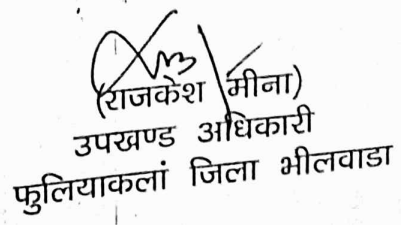 (राजकेश मीना)
उपखण्ड अधिकारी
फुलियाकलां जिला भीलवाडा